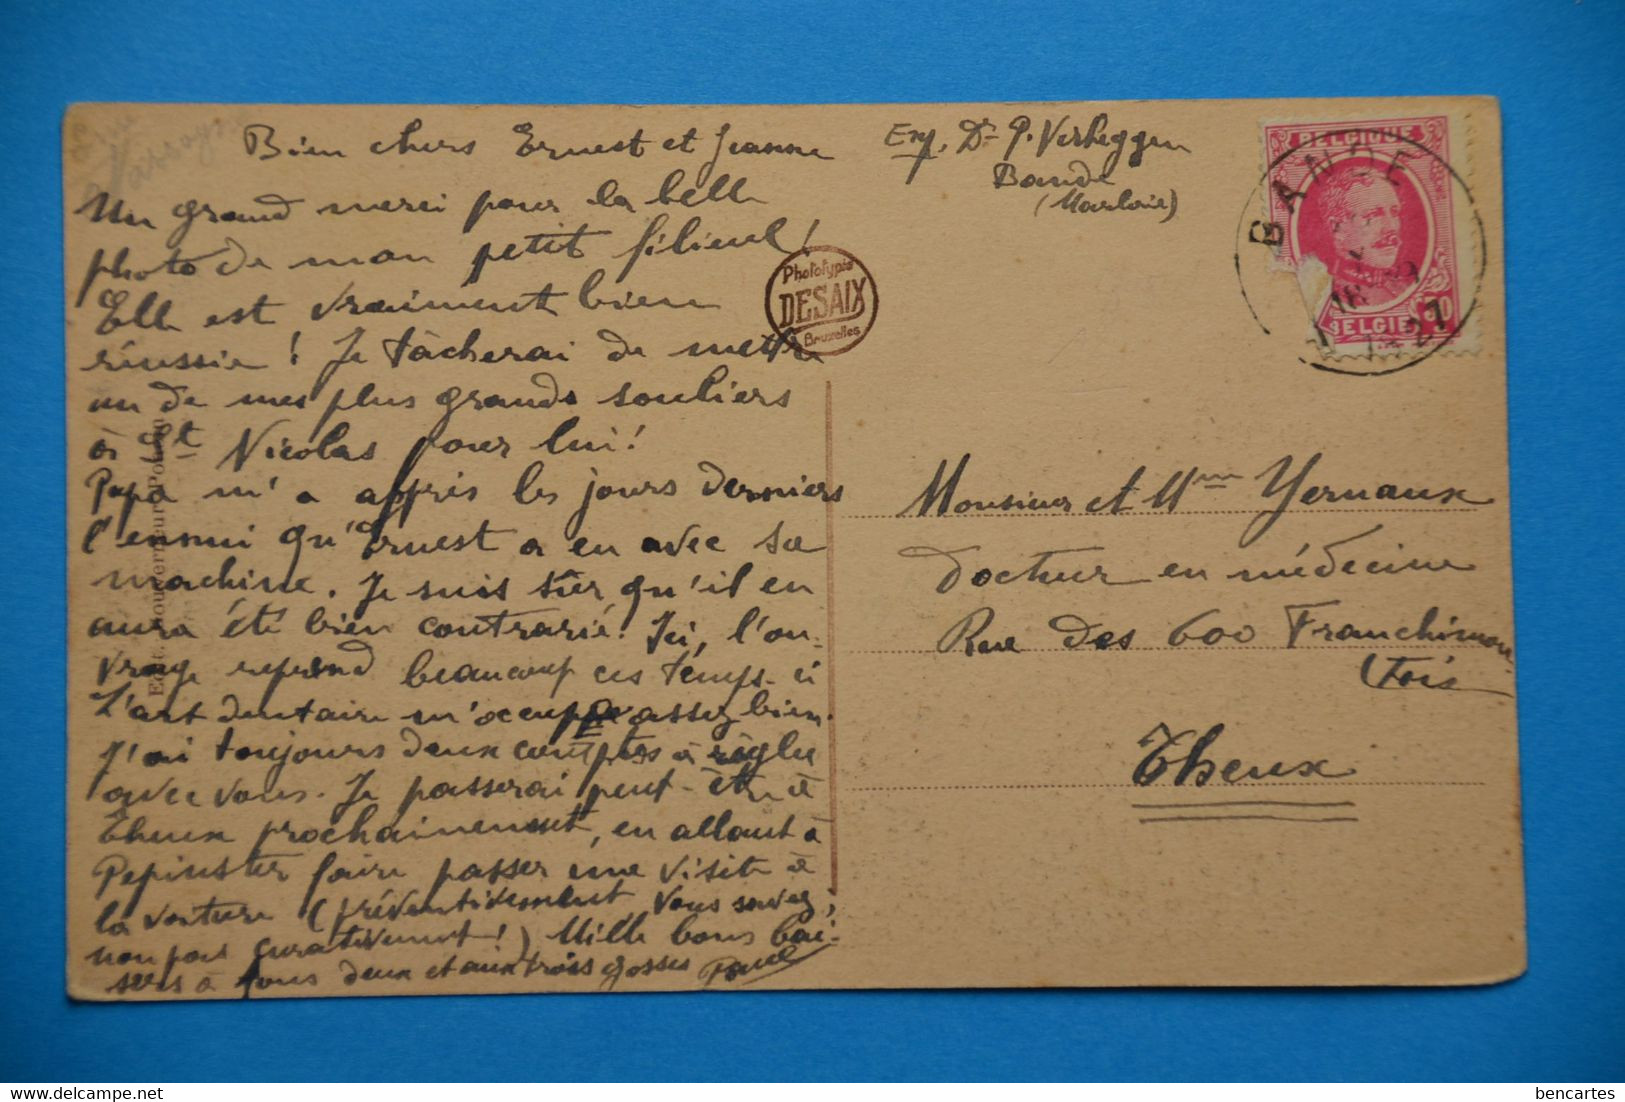 Bien chers Ernest et Jeanne
Un grand merci pour la belle
photo de mon petit filieul!
Elle est vraiment bien
réussie! Je tâcherai de mettre
un de mes plus grands souliers
à St Nicolas pour lui!
Papa m'a appris les jours derniers
l'ennui qu'Ernest a eu avec sa
machine. Je suis sûr qu'il en
aura été bien contrarié! Ici, l'ou-
vrage reprend beaucoup ces temps-ci
L'art dentaire m'occupe assez bien.
J'ai toujours deux comptes à régler
avec vous. Je passerai peut-être à
Theux prochainement, en allant à
Pepinster faire passer une visite à
la voiture (préventivement vous savez,
non pas curativement!) Mille bons bai-
sers à tous deux et aux trois gosses Paul
Exp. Dr P. Verheggen
Bande
(Marloie)
BELGIQUE
BELGIE
BANDE
27
Phototypie
DESAIX
Bruxelles
Monsieur et Mme Yernaux
Docteur en médecine
Rue des 600 Franchimon
tois
Theux
bencartes